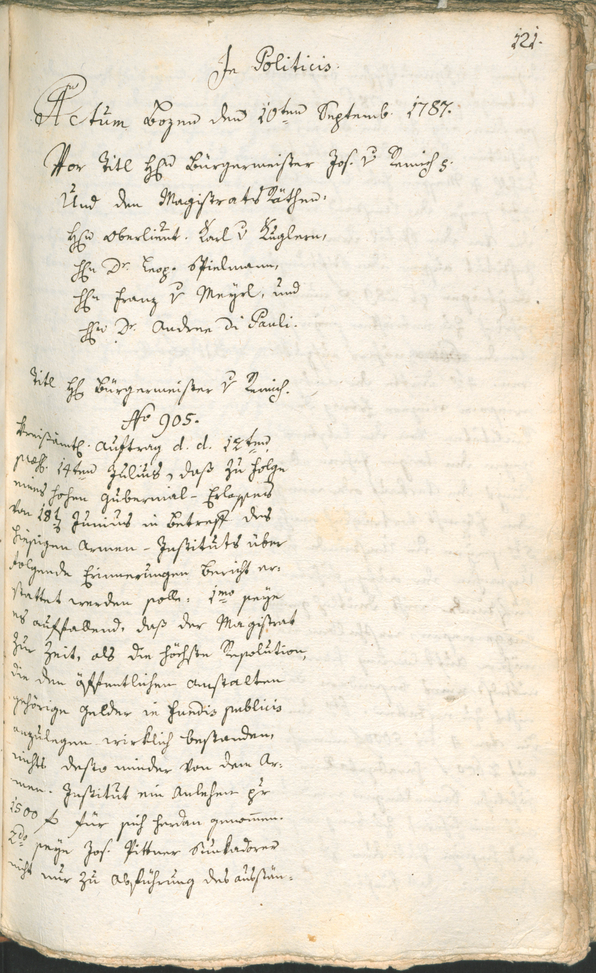 121.
In Politicis.
Actum Bozen den 10ten Septemb. 1787.
Vor Titl Hrn Bürgermeister Jos. v Remich
Und den Magistrats Räthen,
Hrn Oberlieut. Karl v Kuglern,
Hrn Dr. Leop. Spielmann,
Hrn Franz v Mayrl, und
Hrn Dr. Andree Di Pauli.
Titl Hr Bürgermeister v Remich.
No 905.
Kreisämtl. Auftrag d. d. 12ten
praes. 14ten Julius, daß zu folge
eines hohen Gubernial-Erlasses
von 18 Junius in Betreff des
hiesigen Armen-Instituts über
folgende Erinnerungen Bericht er-
stattet werden solle: 1mo seye
es auffallend, daß der Magistrat
zur Zeit, als die höchste Resolution,
die den öffentlichen Anstalten
gehörige Gelder in Fundis publicis
anzulegen wirklich bestanden,
nichts desto minder von dem Ar-
men-Institut ein Anlehen pr
1500 f für sich herdan genommen.
2do seye Jos. Pittner
nicht nur zu Abführung des ausstän-